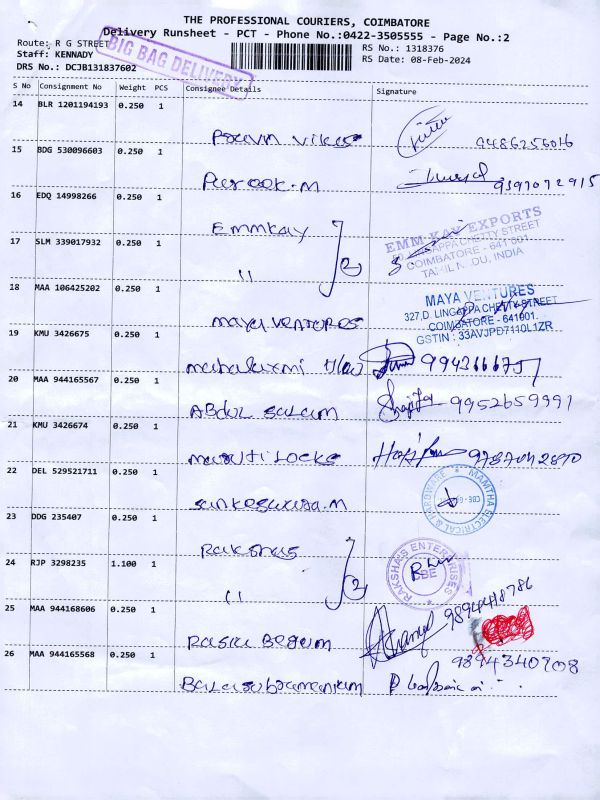 THE PROFESSIONAL COURIERS, COIMBATORE
Delivery Runsheet - PCT - Phone No.:0422-3505555 - Page No.:2
Route: R G STREET
RS No.: 1318376
Staff: KENNADY
RS Date: 08-Feb-2024
DRS No.: DCJB131837602
BIG BAG DELIVERY
S No Consignment No Weight PCS Consignee Details Signature
14 BLR 1201194193 0.250 1
9486256016
15 BDG 530096603 0.250 1
16 EDQ 14998266 0.250 1
Emmkay
EMM-KAY EXPORTS
LINGAPPA CHETTY STREET
COIMBATORE - 641 001
INDIA
17 SLM 339017932 0.250 1
"
18 MAA 106425202 0.250 1
maya ventures
MAYA VENTURES
327,D. LINGAPPA CHETTY STREET
COIMBATORE - 641001.
GSTIN : 33AVJPD7110L1ZR
19 KMU 3426675 0.250 1
mahalaxmi
20 MAA 944165567 0.250 1
Abdul Salam 9952659991
21 KMU 3426674 0.250 1
maruti Locks
22 DEL 529521711 0.250 1
MAMTHA ELECTRICAL & HARDWARE
23 DDG 235407 0.250 1
Rakshas
RAKSHA'S ENTERPRISES
CBE
24 RJP 3298235 1.100 1
"
25 MAA 944168606 0.250 1
Begum
26 MAA 944165568 0.250 1
9894340708
Balasubramanium